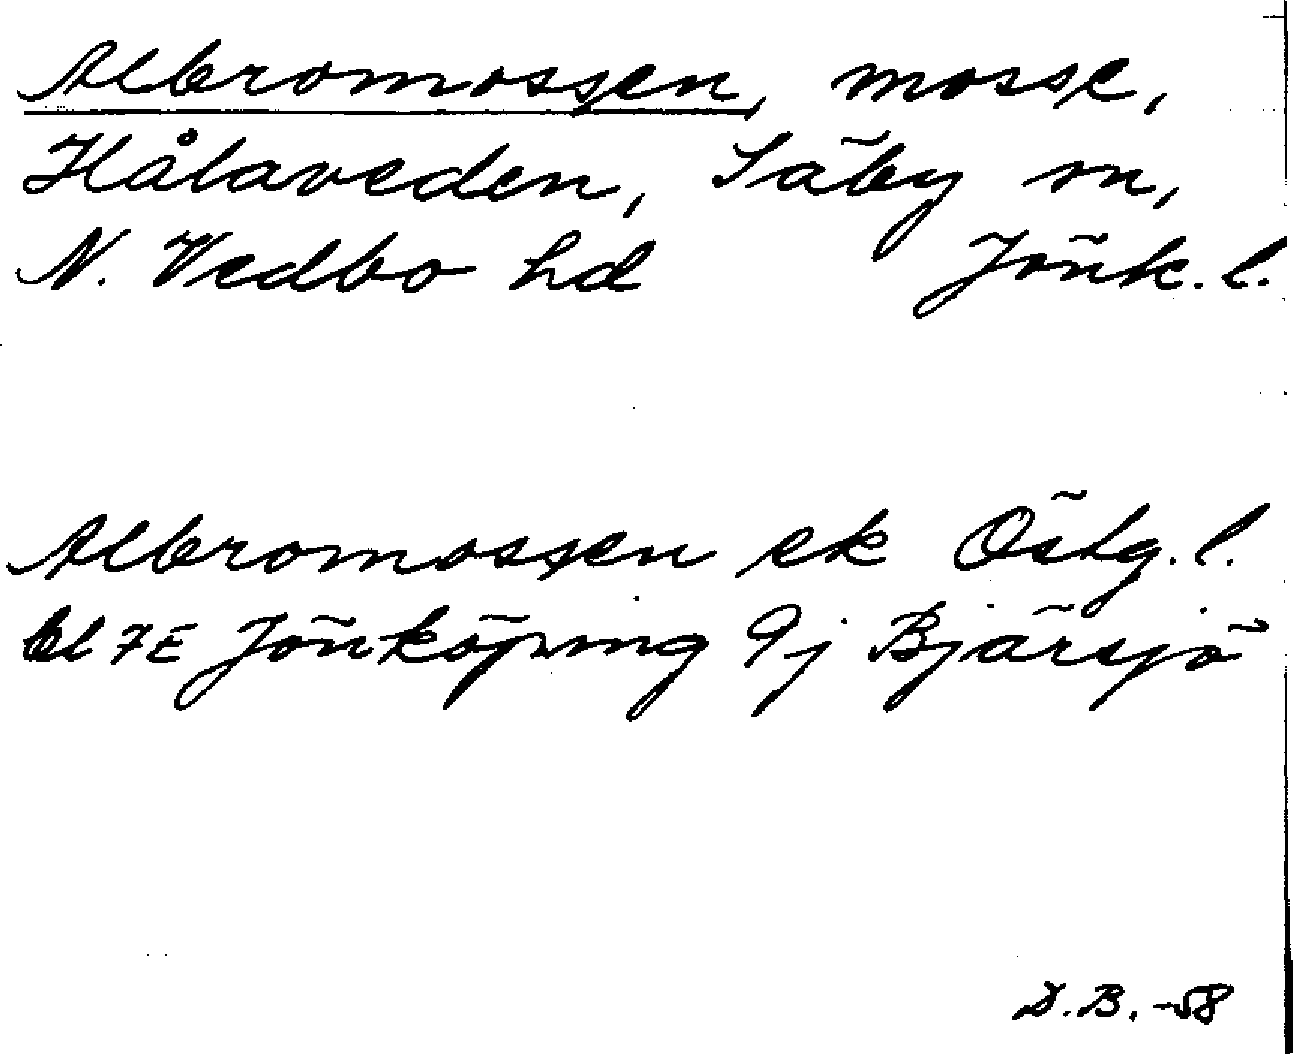 Albromossen, mosse,
Hålaveden, Säby sn,
N. Vedbo hd Jönk. l.
Albromossen ek Östg. l.
bl 7E Jönköping 9j Bjärsjö
D.B. -58